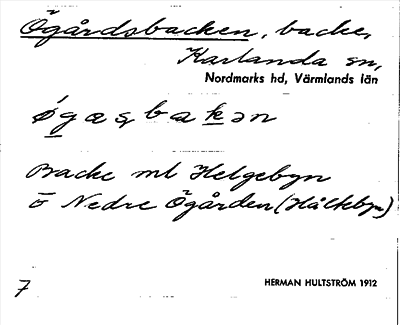 Ögårdsbacken, backe,
Karlanda sn,
Nordmarks hd, Värmlands län
Backe ml Helgebyn
o Nedre Ögården (Hålkebyn)
7
HERMAN HULTSTRÖM 1912